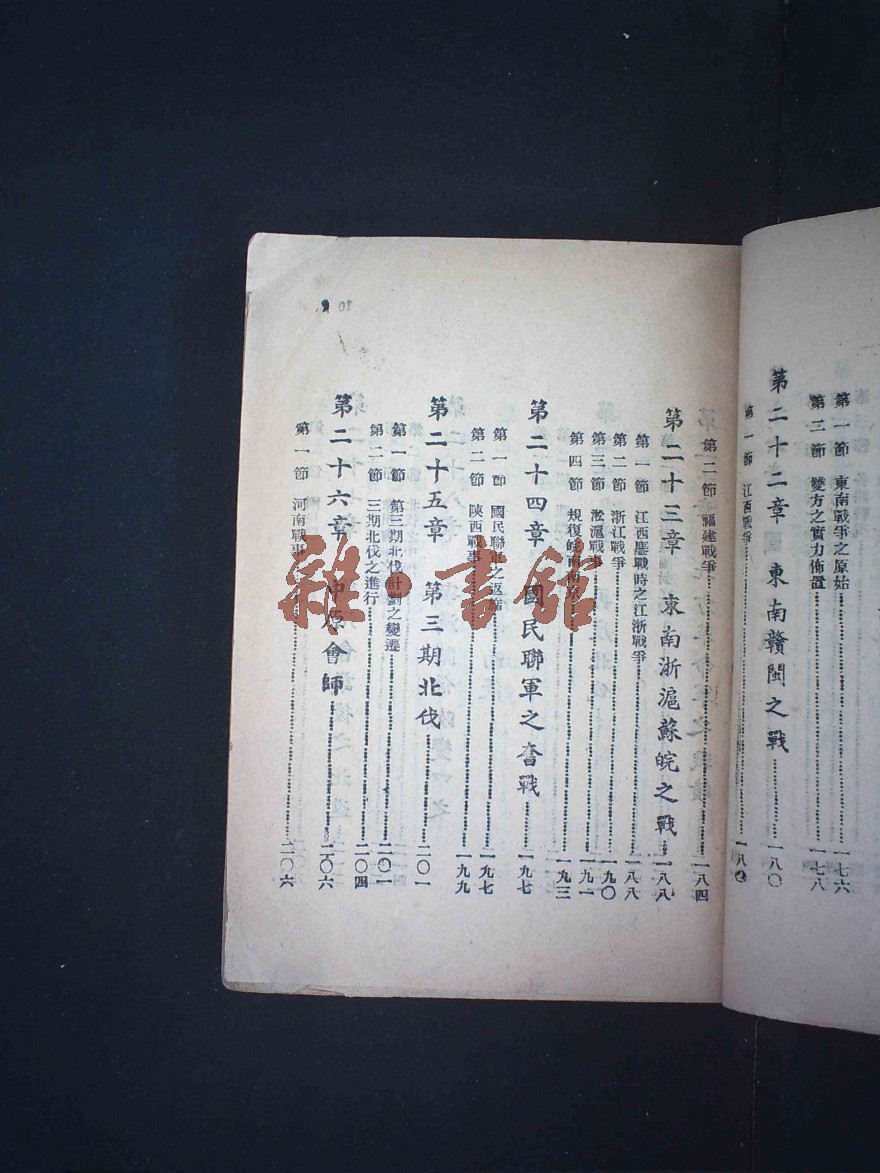 第一節 東南戰爭之原始 一七六
第二節 雙方之實力佈置 一七八
第二十二章 東南贛閩之戰 一八〇
第一節 江西戰爭 一八〇
第二節 福建戰爭 一八四
第二十三章 東南浙滬蘇皖之戰 一八八
第一節 江西鏖戰時之江浙戰爭 一八八
第二節 浙江戰爭 一九〇
第三節 淞滬戰爭 一九一
第四節 規復皖南南京 一九三
第二十四章 國民聯軍之奮戰 一九七
第一節 國民聯軍之返 一九七
第二節 陝西戰事 一九九
第二十五章 第三期北伐 二〇一
第一節 第三期北伐計劃之變遷 二〇一
第二節 三期北伐之進行 二〇四
第二十六章 中原會師 二〇六
第一節 河南戰事 二〇六
10
雜·書館